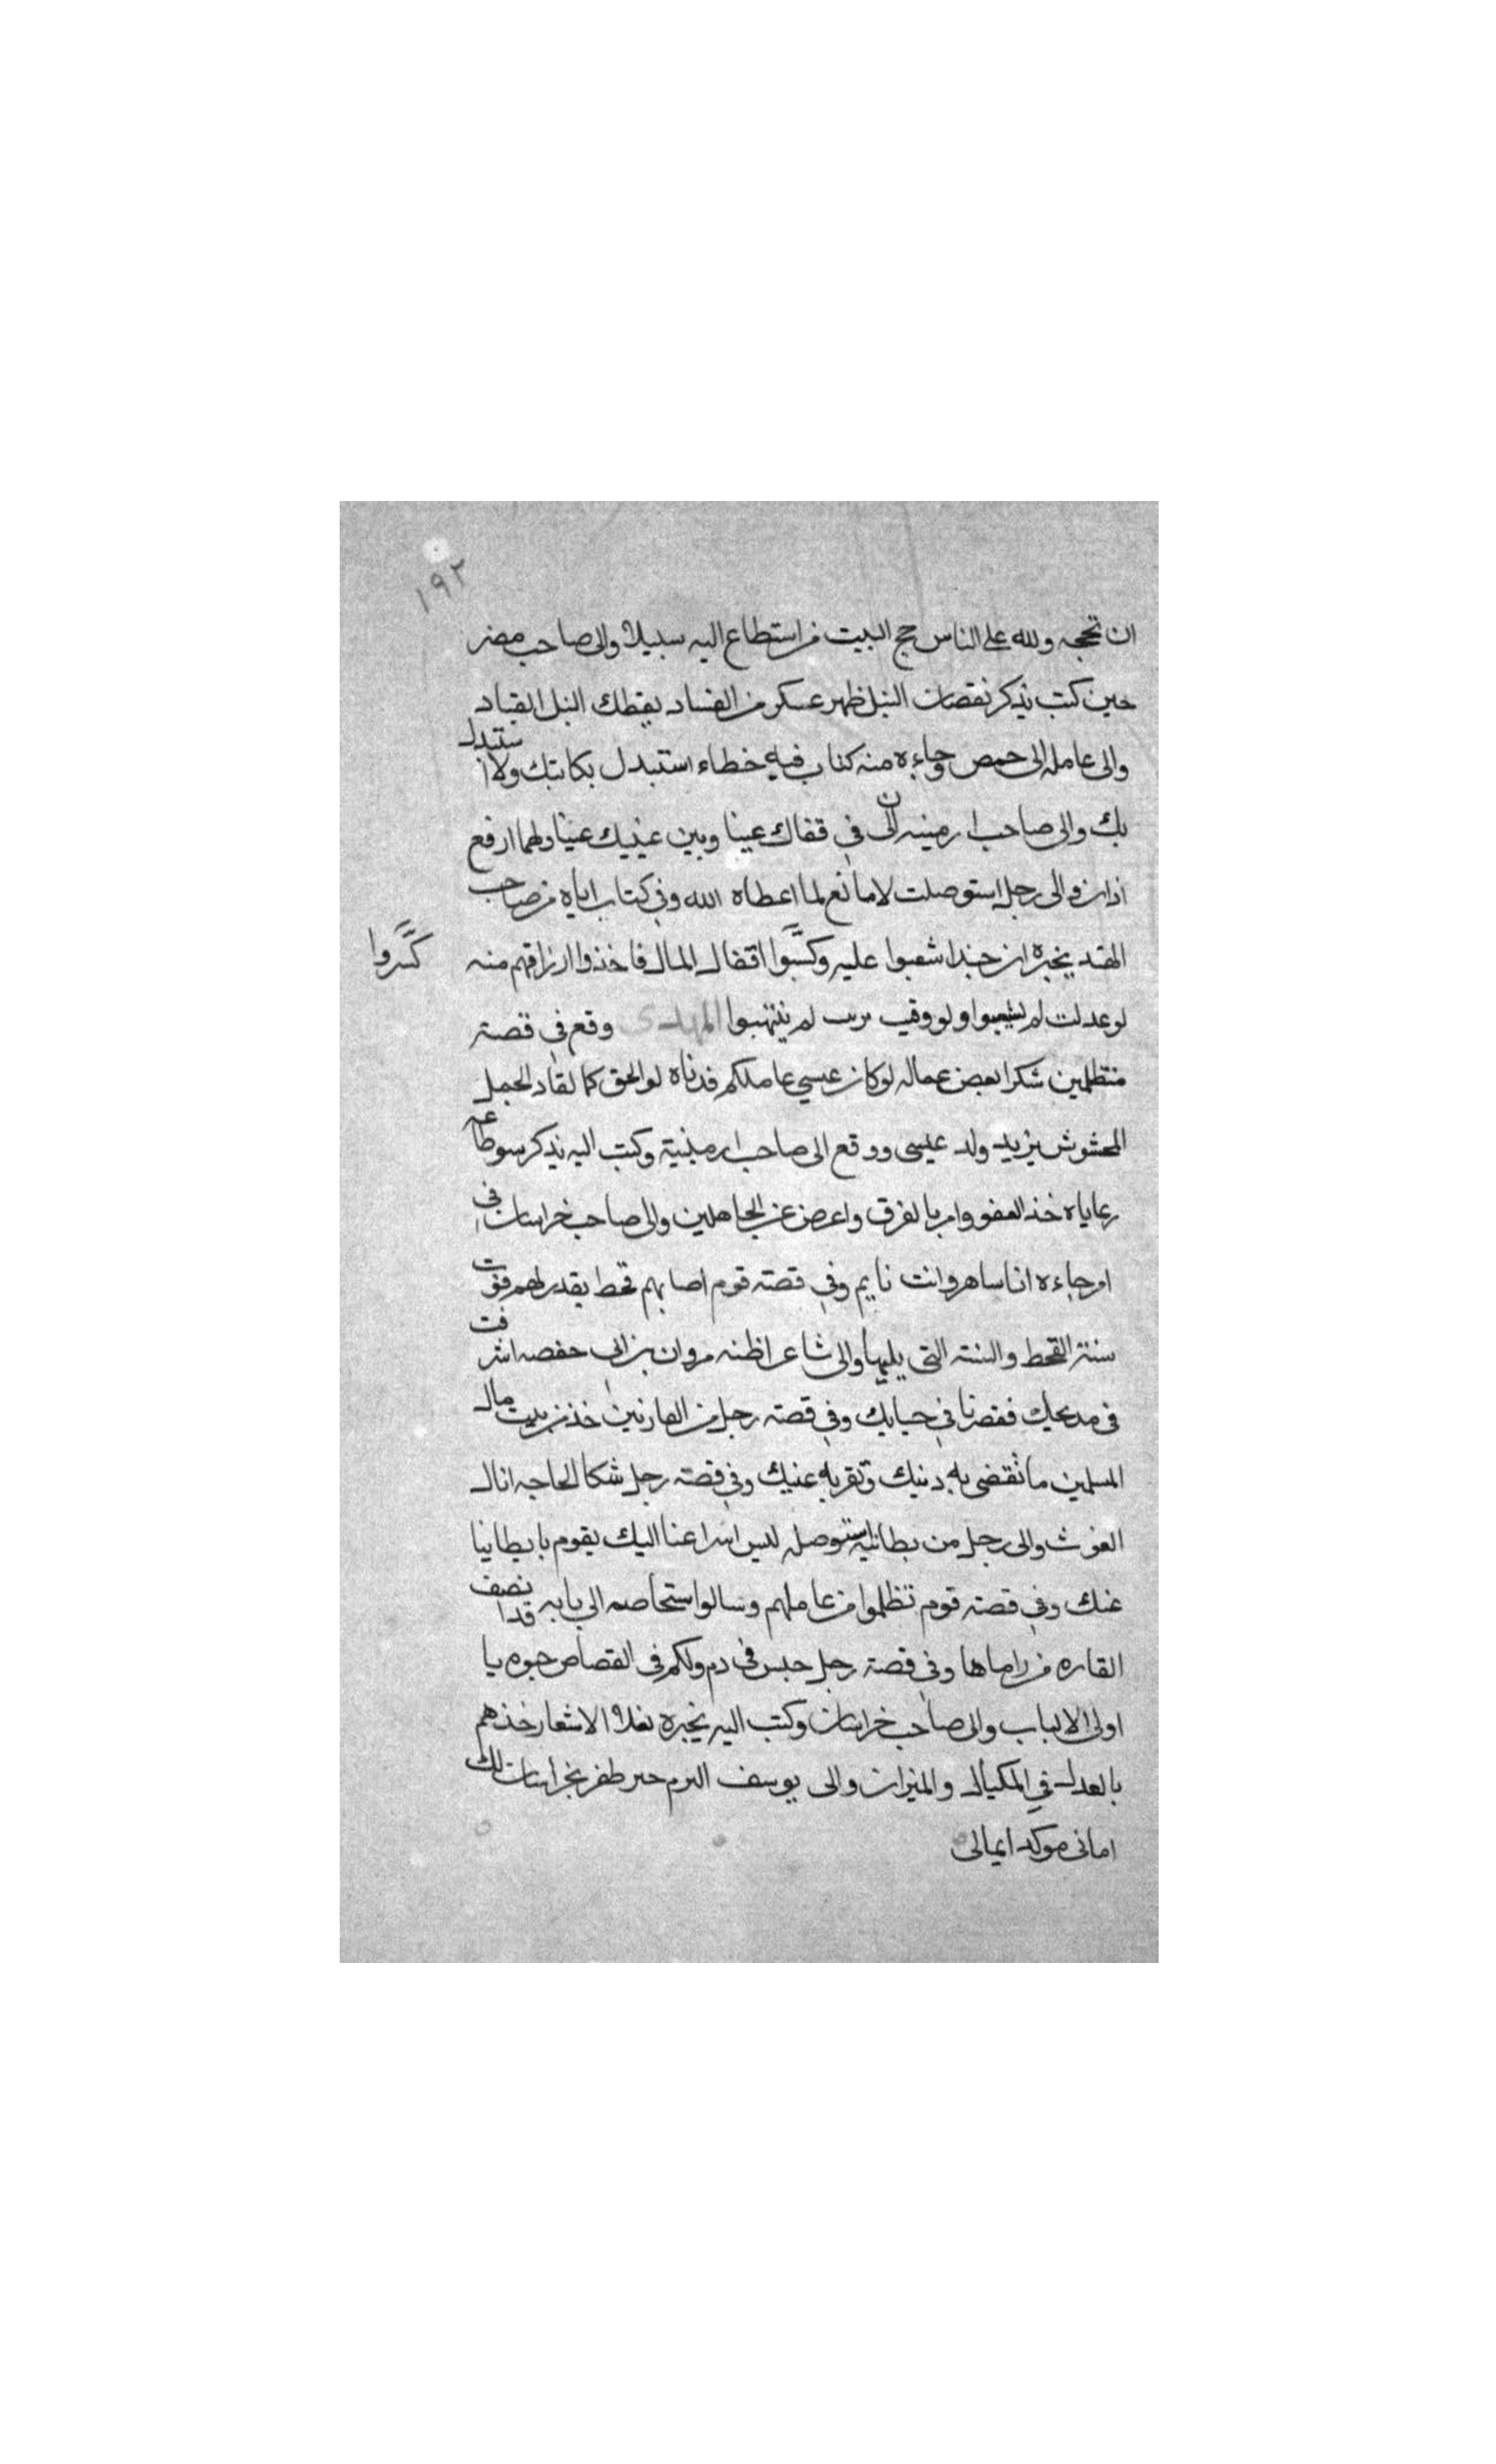 ١٩٢
ان تحجه ولله على الناس حج البيت من استطاع اليه سبيلا والى صاحب مصر
حين كتب يذكر نقصان النيل طهر عسكرك من الفساد يعطك النيل القياد
والى عامله الى حمص وجاءه منه كتاب فيه خطاء استبدل بكاتبك ولا استبدل
بك والى صاحب ارمينيه ان لي في قفاك عينا وبين عينيك عينا ولهما اربع
اذان والى رجل استوصلت لا مانع لما اعطاه الله وفي كتاب اتاه من صاحب
الهند يخبره ان جندا شغبوا عليه وكسروا اقفال المال فاخذوا ارزاقهم منه
كسروا
لو عدلت لم يشغبوا ولو وفيت لم ينتهبوا المهدى وقع في قصة
متظلمين شكوا بعض عماله لو كان عيسى عاملكم قدناه لو الحق كما لقاد الجمل
المخشوش يريد ولد عيسى ووقع الى صاحب ارمينية وكتب اليه يذكر سو طاعه
رعاياه خذ العفو وامر بالعرف واعرض عن الجاهلين والى صاحب خراسان في
امر جاءه انا ساهر وانت نايم وفي قصة قوم اصابهم قحط يقدر لهم قوت
سنة القحط والسنة التى يليها والى شاعر اظنه مروان بن ابى حفصه اسرفت
في مديحك فقصرنا في حبايك وفي قصة رجل من الغارمين خذ من بيت مال
المسلمين ما تقضى به دينك وتقر به عينك وفي قصة رجل شكا الحاجه اتاك
الغوث والى رجل من بطانته استوصله ليس اسراعنا اليك يقوم بابطاينا
عنك وفي قصة قوم تظلموا من عاملهم وسالوا اشخاصه الى بابه قد انصف
القاره من راماها وفي قصة رجل حبس في دم ولكم في القصاص حيوه يا
اولى الالباب والى صاحب خراسان وكتب اليه يخبره بغلاء الاسعار خذهم
بالعدل في المكيال والميزان والى يوسف البرم حين ظفر بخراسان لك
امانى موكد ايمانى